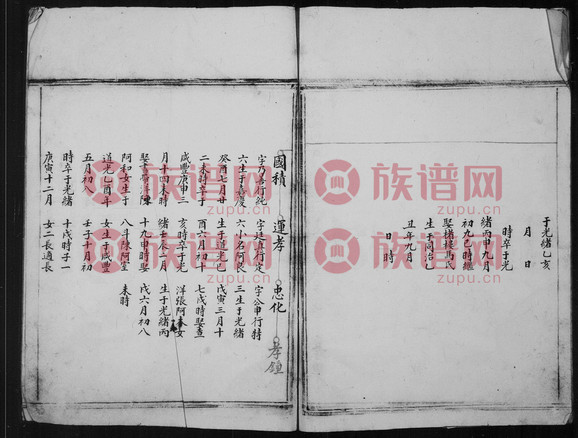 于光緒乙亥
月 日
時卒于光
緒丙申九月
初九巳時繼
馬氏
生于同治乙
丑年九月
日 時
國積
字乃真行純
六生于嘉慶
癸酉二月廿
二未時卒于
咸豐庚申三
月十四未時
陳
阿和女生于
道光乙酉年
五月初八
時卒于光緒
庚寅十二月
運孝
字廷真行定
六十小名阿良
生于道光己
酉六月初十
亥時卒于光
緒壬辰二月
十九申時娶
八斗陳阿宝
女生于咸豐
壬子十月初
十戌時子一
女二長適長
忠化
字公申行特
三生于光緒
戊寅三月十
七戌時娶查
洋張阿奉女
生于光緒丙
戌六月初八
未時
孝鍾
族谱网
www.zupu.cn
族谱网
www.zupu.cn
族谱网
www.zupu.cn
族谱网
www.zupu.cn